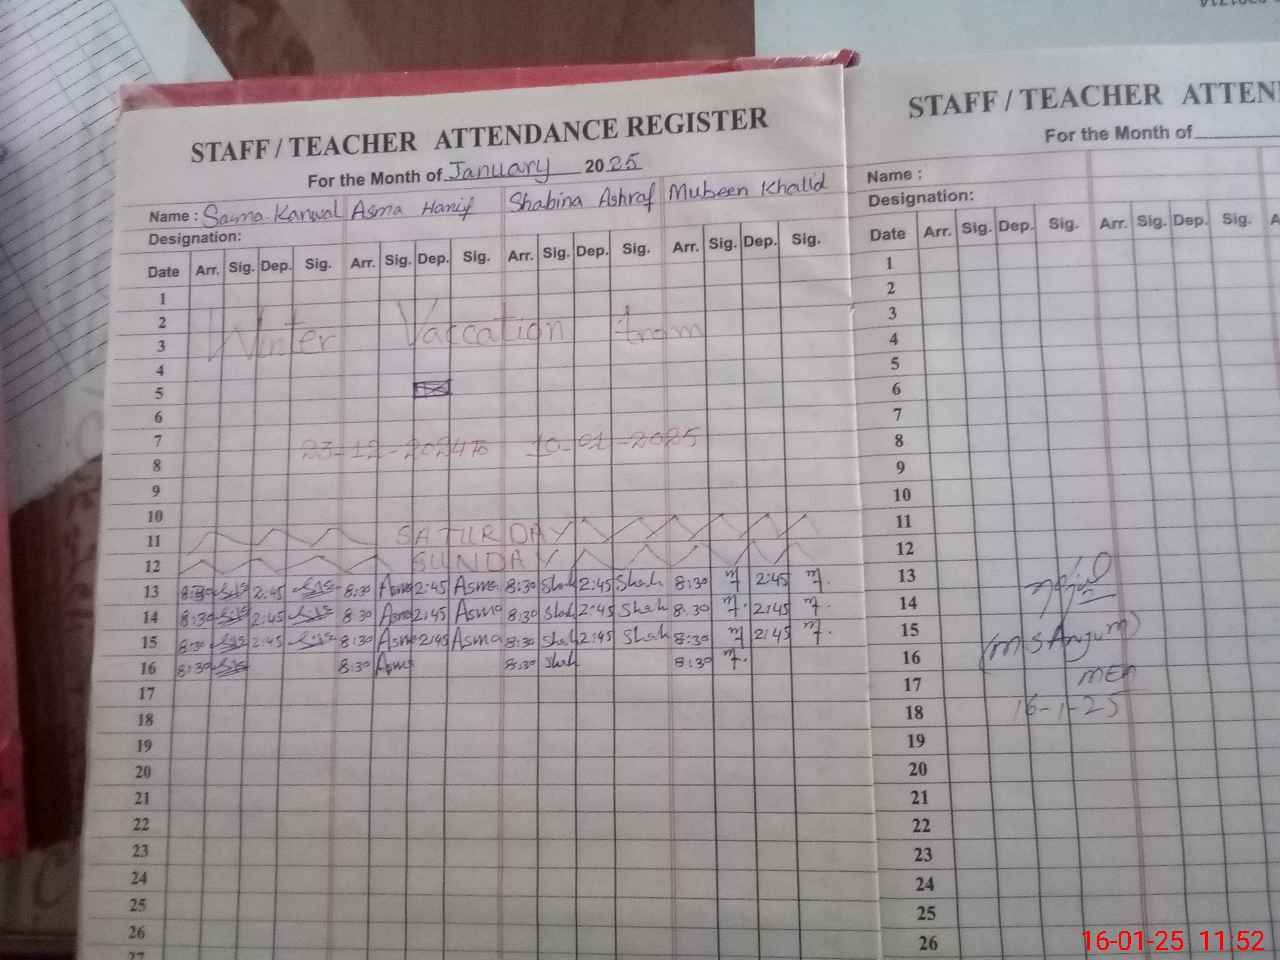 STAFF / TEACHER ATTENDANCE REGISTER
For the Month of January 2025
Name : Saima Kanwal Asma Hanif Shabina Ashraf Mubeen Khalid
Designation:
Date Arr. Sig. Dep. Sig. Arr. Sig. Dep. Sig. Arr. Sig. Dep. Sig. Arr. Sig. Dep. Sig.
1
2 Winter Vaccation from
3
4
5
6
7 23-12-2024 To 10-01-2025
8
9
10
11 SATURDAY
12 SUNDAY
13 8:30 2:45 8:30 Asma 2:45 Asma 8:30 Shab 2:45 Shab 8:30 m 2:45 m.
14 8:30 2:45 8:30 Asma 2:45 Asma 8:30 Shab 2:45 Shab 8:30 m. 2:45 m.
15 8:30 2:45 8:30 Asma 2:45 Asma 8:30 Shab 2:45 Shab 8:30 m 2:45 m.
16 8:30 8:30 Asma 8:30 Shab 8:30 m.
17
18
19
20
21
22
23
24
25
26
27
STAFF / TEACHER ATTEN
For the Month of
Name :
Designation:
Date Arr. Sig. Dep. Sig. Arr. Sig. Dep. Sig.
1
2
3
4
5
6
7
8
9
10
11
12
13
14
15 (M S Anjum)
16
17 MEA
18 16-1-25
19
20
21
22
23
24
25
26
16-01-25 11:52